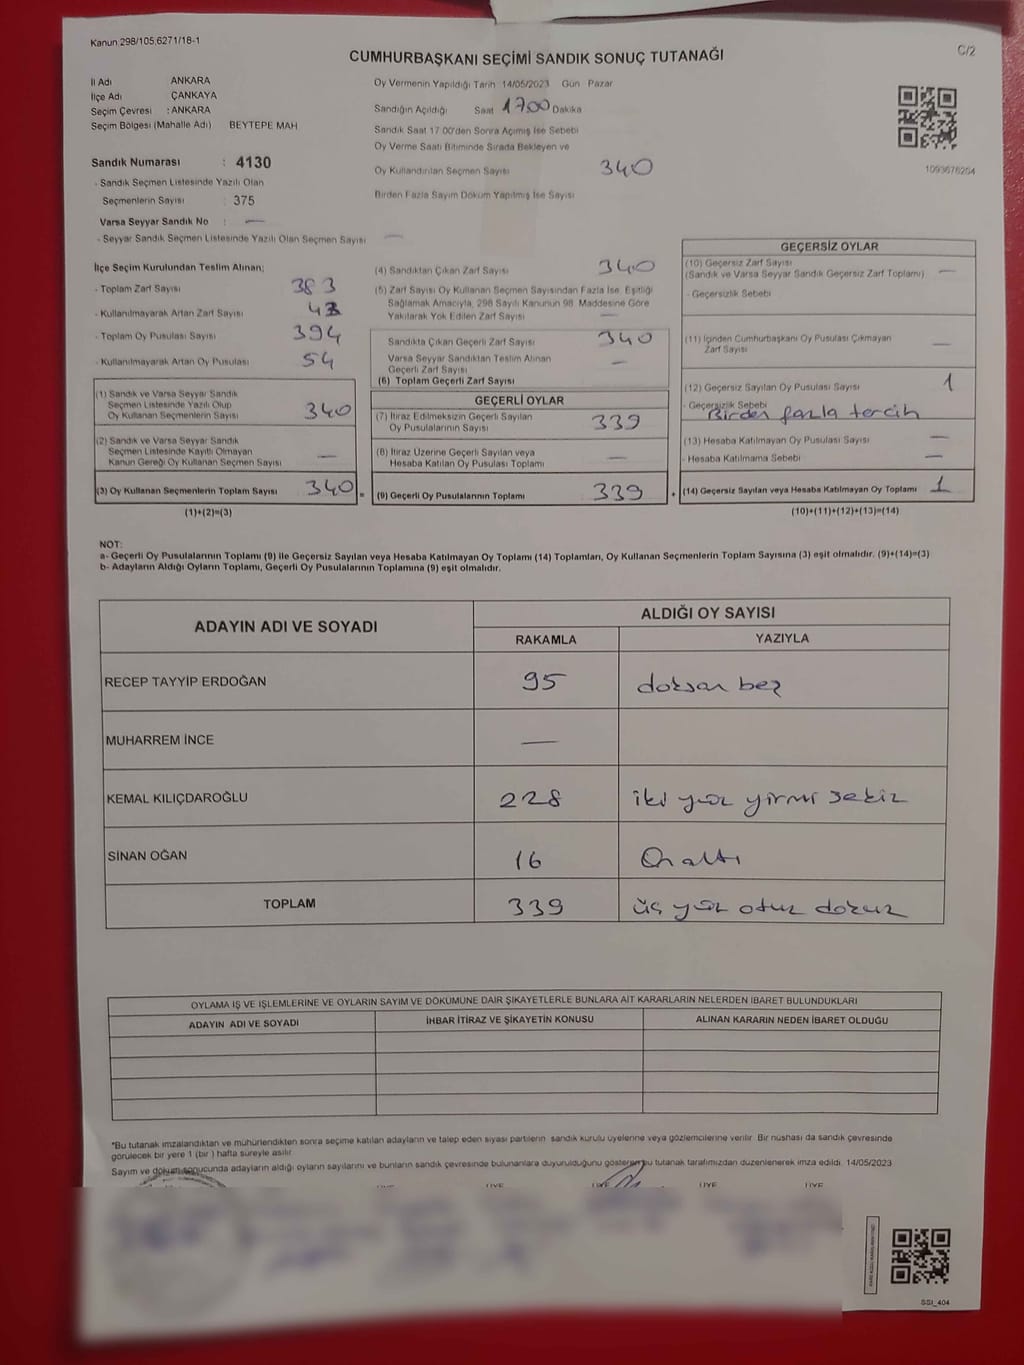 Kanun 298/105,6271/18-1
C/2
CUMHURBAŞKANI SEÇİMİ SANDIK SONUÇ TUTANAĞI
İl Adı ANKARA
İlçe Adı ÇANKAYA
Seçim Çevresi : ANKARA
Seçim Bölgesi (Mahalle Adı) BEYTEPE MAH
Sandık Numarası : 4130
- Sandık Seçmen Listesinde Yazılı Olan
Seçmenlerin Sayısı : 375
Varsa Seyyar Sandık No : —
- Seyyar Sandık Seçmen Listesinde Yazılı Olan Seçmen Sayısı —
Oy Vermenin Yapıldığı Tarih 14/05/2023 Gün Pazar
Sandığın Açıldığı Saat 1700 Dakika
Sandık Saat 17 00'den Sonra Açımış İse Sebebi
Oy Verme Saati Bitiminde Sırada Bekleyen ve
Oy Kullandırılan Seçmen Sayısı 340
Birden Fazla Sayım Döküm Yapılmış İse Sayısı
İlçe Seçim Kurulundan Teslim Alınan;
- Toplam Zarf Sayısı 383
- Kullanılmayarak Artan Zarf Sayısı 43
- Toplam Oy Pusulası Sayısı 394
- Kullanılmayarak Artan Oy Pusulası 54
(1) Sandık ve Varsa Seyyar Sandık
Seçmen Listesinde Yazılı Olup
Oy Kullanan Seçmenlerin Sayısı 340
(2) Sandık ve Varsa Seyyar Sandık
Seçmen Listesinde Kayıtlı Olmayan
Kanun Gereği Oy Kullanan Seçmen Sayısı —
(3) Oy Kullanan Seçmenlerin Toplam Sayısı 340 =
(1)+(2)=(3)
(4) Sandıktan Çıkan Zarf Sayısı 340
(5) Zarf Sayısı Oy Kullanan Seçmen Sayısından Fazla İse, Eşitliği
Sağlamak Amacıyla, 298 Sayılı Kanunun 98. Maddesine Göre
Yakılarak Yok Edilen Zarf Sayısı —
Sandıkta Çıkan Geçerli Zarf Sayısı 340
Varsa Seyyar Sandıktan Teslim Alınan
Geçerli Zarf Sayısı —
(6) Toplam Geçerli Zarf Sayısı
GEÇERLİ OYLAR
(7) İtiraz Edilmeksizin Geçerli Sayılan
Oy Pusulalarının Sayısı 339
(8) İtiraz Üzerine Geçerli Sayılan veya
Hesaba Katılan Oy Pusulası Toplamı —
(9) Geçerli Oy Pusulalarının Toplamı 339 +
GEÇERSİZ OYLAR
(10) Geçersiz Zarf Sayısı
(Sandık ve Varsa Seyyar Sandık Geçersiz Zarf Toplamı) —
- Geçersizlik Sebebi
(11) İçinden Cumhurbaşkanı Oy Pusulası Çıkmayan
Zarf Sayısı —
(12) Geçersiz Sayılan Oy Pusulası Sayısı 1
- Geçersizlik Sebebi
Birden fazla tercih
(13) Hesaba Katılmayan Oy Pusulası Sayısı —
- Hesaba Katılmama Sebebi —
(14) Geçersiz Sayılan veya Hesaba Katılmayan Oy Toplamı 1
(10)+(11)+(12)+(13)=(14)
1093676204
NOT:
a- Geçerli Oy Pusulalarının Toplamı (9) ile Geçersiz Sayılan veya Hesaba Katılmayan Oy Toplamı (14) Toplamları, Oy Kullanan Seçmenlerin Toplam Sayısına (3) eşit olmalıdır. (9)+(14)=(3)
b- Adayların Aldığı Oyların Toplamı, Geçerli Oy Pusulalarının Toplamına (9) eşit olmalıdır.
ADAYIN ADI VE SOYADI ALDIĞI OY SAYISI
RAKAMLA YAZIYLA
RECEP TAYYİP ERDOĞAN 95 doksan beş
MUHARREM İNCE —
KEMAL KILIÇDAROĞLU 228 iki yüz yirmi sekiz
SİNAN OĞAN 16 On altı
TOPLAM 339 üç yüz otuz dokuz
OYLAMA İŞ VE İŞLEMLERİNE VE OYLARIN SAYIM VE DÖKÜMÜNE DAİR ŞİKAYETLERLE BUNLARA AİT KARARLARIN NELERDEN İBARET BULUNDUKLARI
ADAYIN ADI VE SOYADI İHBAR İTİRAZ VE ŞİKAYETİN KONUSU ALINAN KARARIN NEDEN İBARET OLDUĞU
*Bu tutanak imzalandıktan ve mühürlendikten sonra seçime katılan adayların ve talep eden siyasi partilerin sandık kurulu üyelerine veya gözlemcilerine verilir. Bir nüshası da sandık çevresinde
görülecek bir yere 1 (bir ) hafta süreyle asılır.
Sayım ve döküm sonucunda adayların aldığı oyların sayılarını ve bunların sandık çevresinde bulunanlara duyurulduğunu gösteren bu tutanak tarafımızdan düzenlenerek imza edildi. 14/05/2023
ÜYE ÜYE ÜYE ÜYE ÜYE
SSI_404